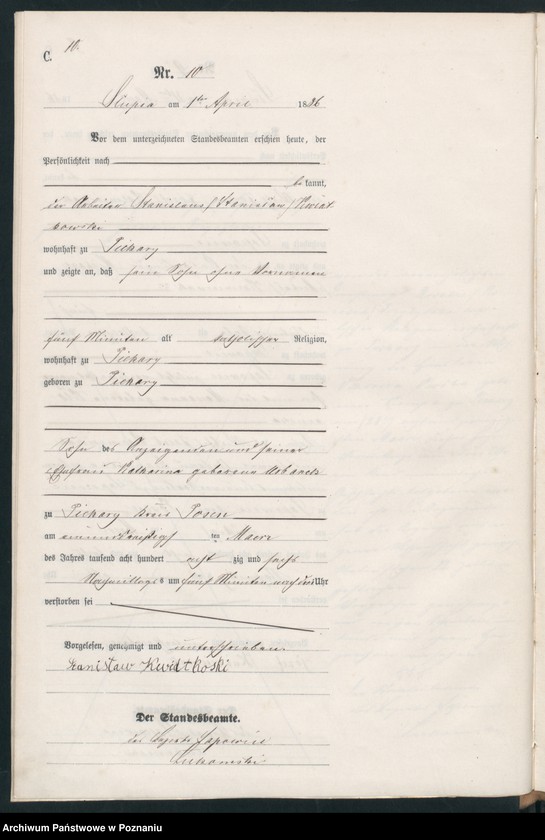 C.
10.
Nr. 10
Slupia am 1ten April 1886
Vor dem unterzeichneten Standesbeamten erschien heute, der
Persönlichkeit nach
bekannt,
der Arbeiter Stanislaus /Stanisław/ Kwiat
kowski
wohnhaft zu Piekary
und zeigte an, daß sein Sohn ohne Vornamen
fünf Minuten alt katholischer Religion,
wohnhaft zu Piekary
geboren zu Piekary
Sohn des Anzeigenden und seiner
Ehefrau Katharina geborene Urbaneck
zu Piekary Kreis Posen
am einunddreißigsten Maerz
des Jahres tausend acht hundert achtzig und sechs
Nachmittags um fünf Minuten nach Uhr
verstorben sei
Vorgelesen, genehmigt und unterschrieben
Stanisław Kwiatkoski
Der Standesbeamte.
Lukomski
Archiwum Państwowe w Poznaniu